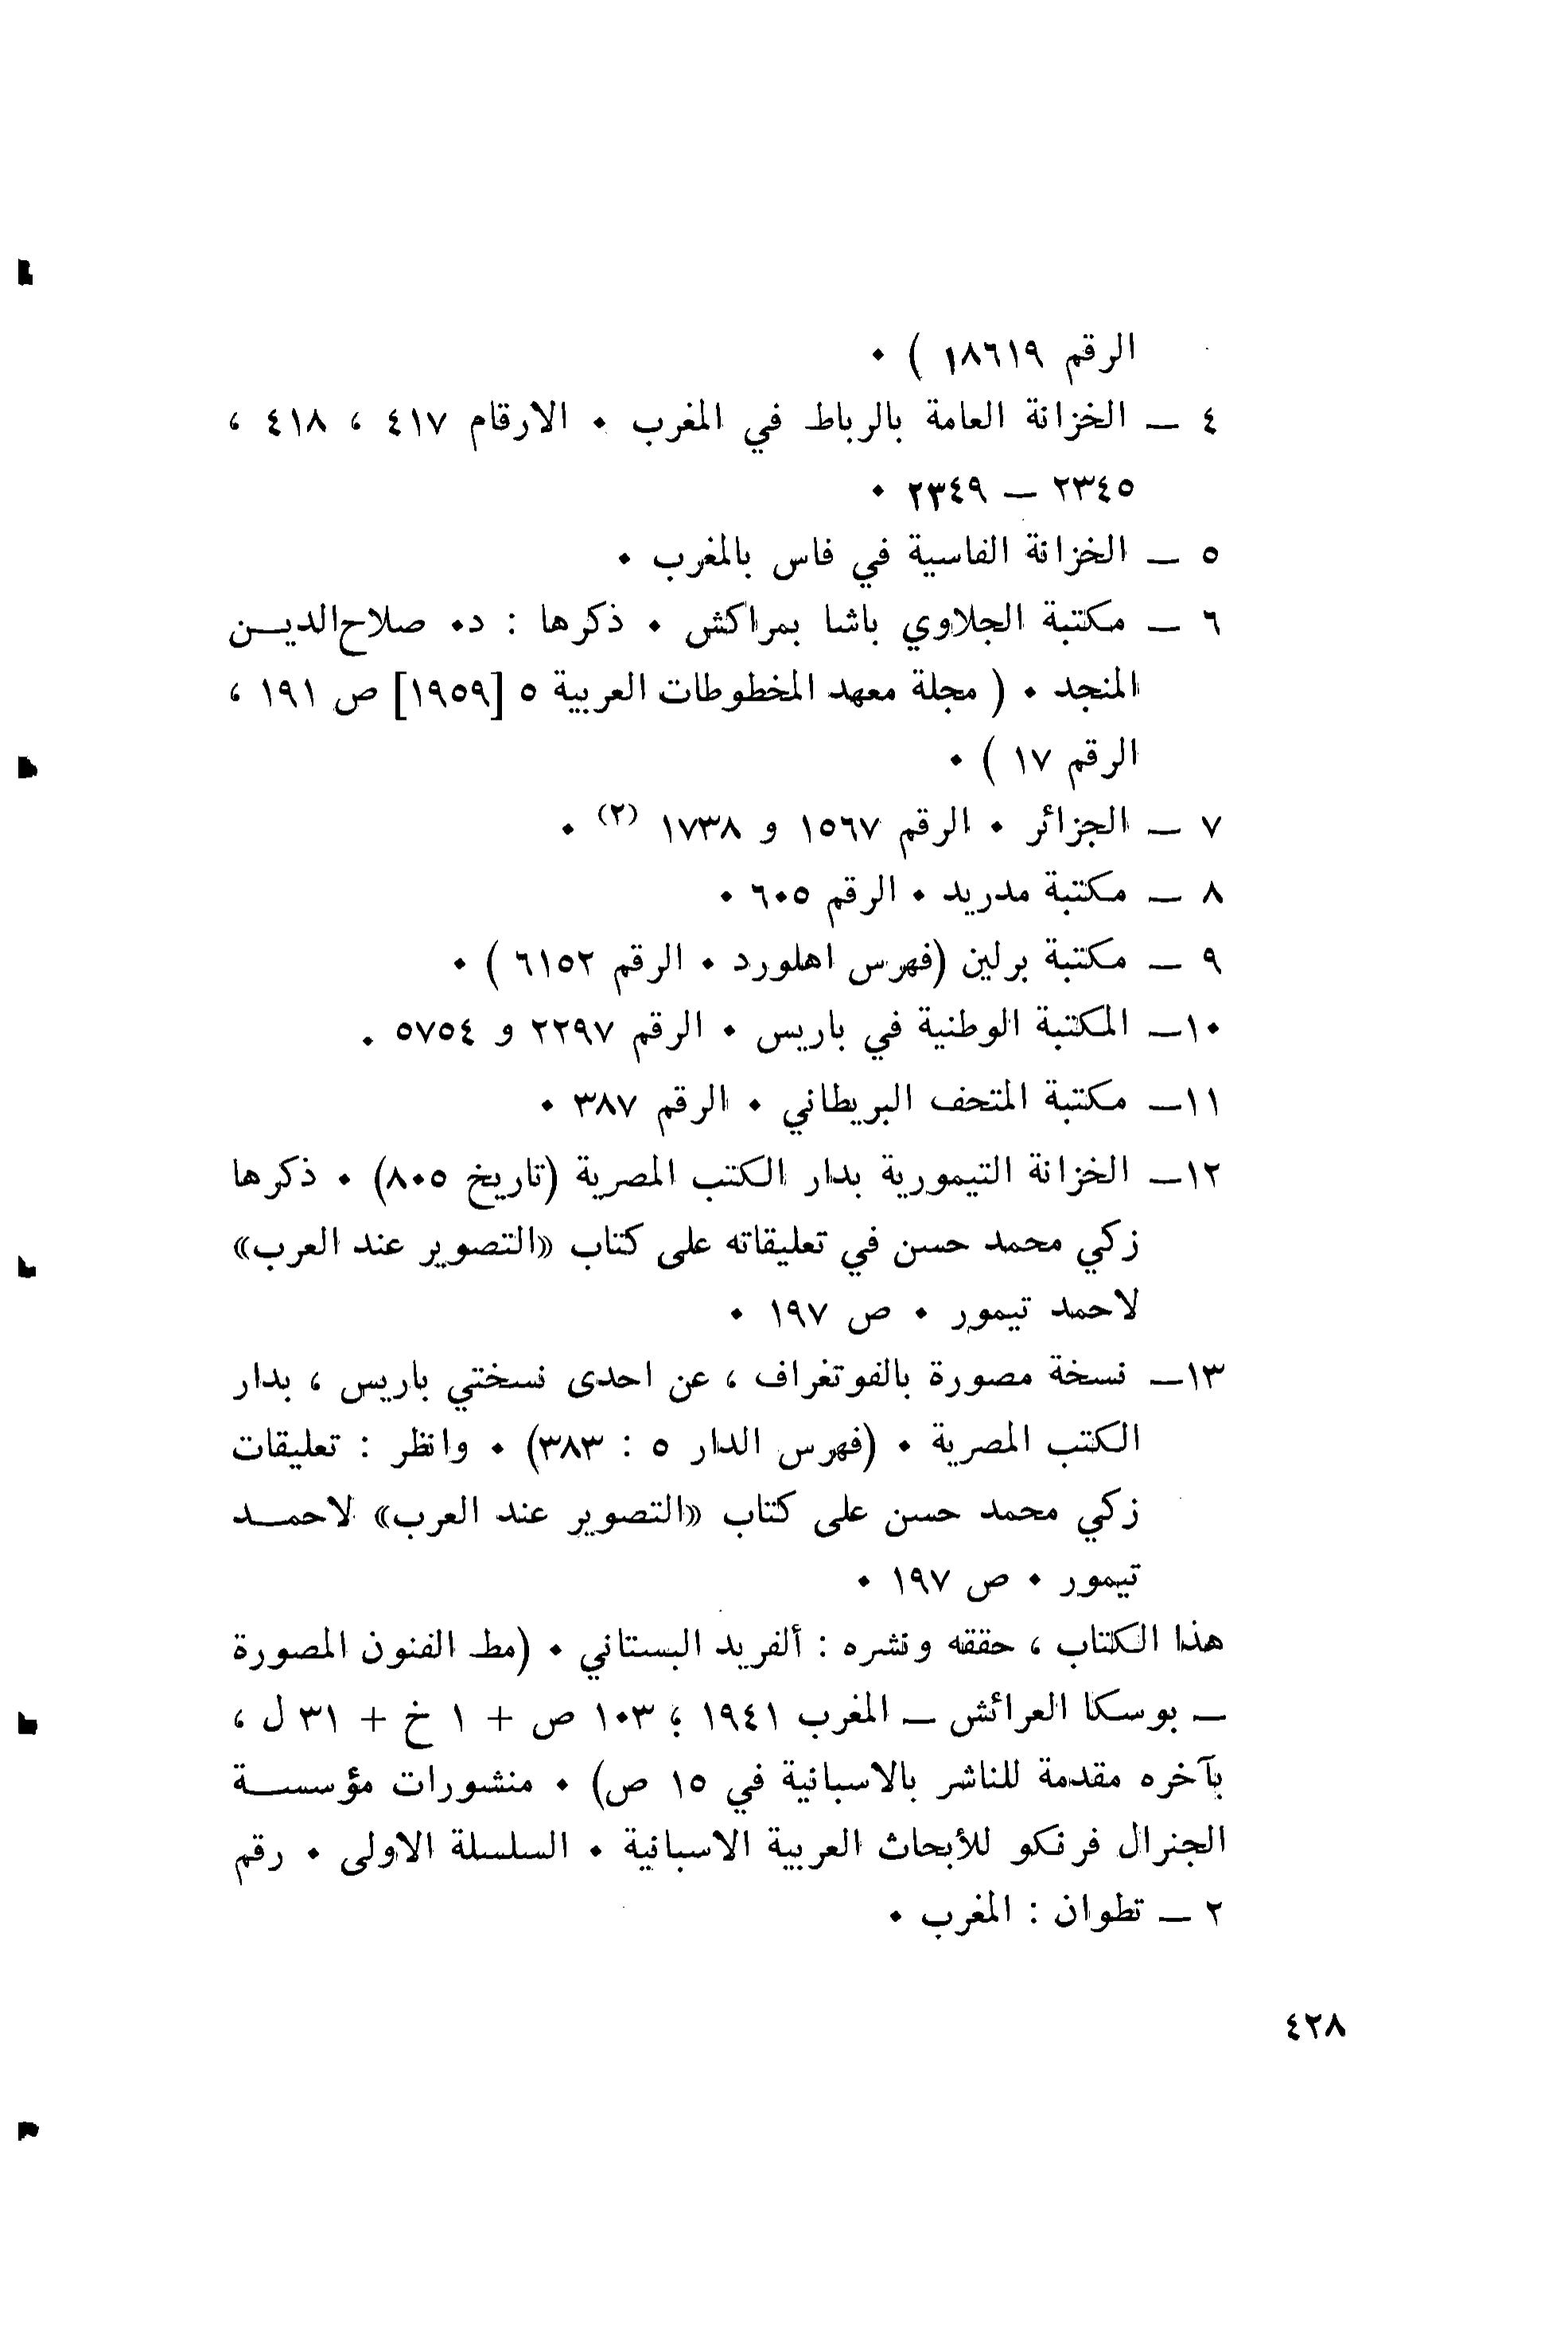 الرقم ١٨٦١٩ ) ٠
٤ ــ الخزانة العامة بالرباط في المغرب ٠ الارقام ٤١٧ ، ٤١٨ ،
٢٣٤٥ ــ ٢٣٤٩ ٠
٥ ــ الخزانة الفاسية في فاس بالمغرب ٠
٦ ــ مكتبة الجلاوي باشا بمراكش ٠ ذكرها : د٠ صلاح‌الديـــن
المنجد ٠ ( مجلة معهد المخطوطات العربية ٥ [١٩٥٩] ص ١٩١ ،
الرقم ١٧ ) ٠
٧ ــ الجزائر ٠ الرقم ١٥٦٧ و ١٧٣٨ (٢) ٠
٨ ــ مكتبة مدريد ٠ الرقم ٦٠٥ ٠
٩ ــ مكتبة برلين (فهرس اهلورد ٠ الرقم ٦١٥٢ ) ٠
١٠ــ المكتبة الوطنية في باريس ٠ الرقم ٢٢٩٧ و ٥٧٥٤ .
١١ــ مكتبة المتحف البريطاني ٠ الرقم ٣٨٧ ٠
١٢ــ الخزانة التيمورية بدار الكتب المصرية (تاريخ ٨٠٥) ٠ ذكرها
زكي محمد حسن في تعليقاته على كتاب «التصوير عند العرب»
لاحمد تيمور ٠ ص ١٩٧ ٠
١٣ــ نسخة مصورة بالفوتغراف ، عن احدى نسختي باريس ، بدار
الكتب المصرية ٠ (فهرس الدار ٥ : ٣٨٣) ٠ وانظر : تعليقات
زكي محمد حسن على كتاب «التصوير عند العرب» لاحمـــد
تيمور ٠ ص ١٩٧ ٠
هذا الكتاب ، حققه ونشره : ألفريد البستاني ٠ (مط الفنون المصورة
ــ بوسكا العرائش ــ المغرب ١٩٤١ ؛ ١٠٣ ص + ١ خ + ٣١ ل ،
بآخره مقدمة للناشر بالاسبانية في ١٥ ص) ٠ منشورات مؤسســـة
الجنرال فرنكو للأبحاث العربية الاسبانية ٠ السلسلة الاولى ٠ رقم
٢ ــ تطوان : المغرب ٠
٤٢٨